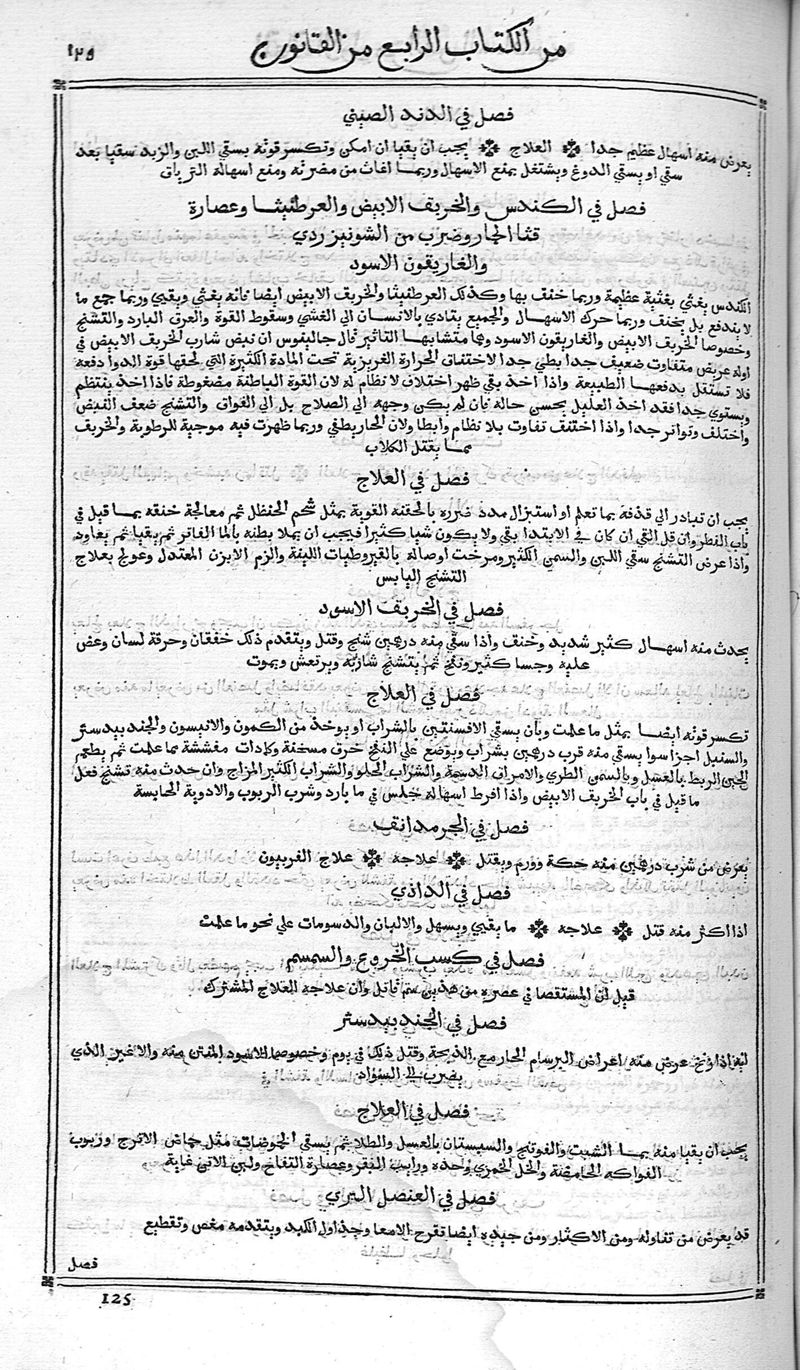 من الكتاب الرابع من القانون ١٢٥
فصل في الدند الصيني
يعرض منه اسهال عظيم جدا العلاج يجب ان يقيا ان امكن وتكسر قوته بسقي اللبن والزبد سقيا بعد
سقي او يسقي الدوغ ويشتغل بمنع الاسهال وربما اغاث من مضرته ومنع اسهاله الترياق
فصل في الكندس والخربف الابيض والعرطنيثا وعصارة
قثا الحمار وضرب من الشونيز ردي
والغاريقون الاسود
الكندس يغثي بغثية عظيمة وربما خنف بها وكذلك العرطنيثا والخربف الابيض ايضا فانه يغثي ويقيي وربما جمع ما
لا يندفع بل يخنف وربما حرك الاسهال والجميع يتادي بالانسان الي الغشي وسقوط القوة والعرق البارد والتشنج
وخصوصا الخربف الابيض والغاريقون الاسود وهما متشابها التاثير قال جالينوس ان نبض شارب الخربف الابيض في
اوله عريض متفاوت ضعيف جدا بطي جدا لاختفاق الحرارة الغريزية تحت المادة الكثيرة التي لحقها قوة الدوا دفعه
فلا تستقل بدفعها الطبيعة واذا اخذ يقي ظهر اختلاف لا نظام له لان القوة الباطنة مضغوطة فاذا اخذ ينتظم
ويستوي جدا فقد اخذ العليل يحسن حاله فان لم يكن وجهه الي الصلاح بل الي الفواق والتشنج ضعف النبض
واختلف وتواتر جدا واذا اختنف تفاوت بلا نظام وابطا ولان الحار يطفي وربما ظهرت فيه موجية للرطوبة والخربف
مما يقتل الكلاب
فصل في العلاج
يجب ان تبادر الي قذفه بما تعلم او استنزال مدد ضرره بالحقنه القوية بمثل شحم الحنظل ثم معالجة خنقه بما قيل في
باب الفطر وان قل القي ان كان في الابتدا بقي ولا يكون شيا كثيرا فيجب ان يملا بطنه بالما الفاتر ثم يقيا ثم يعاود
واذا عرض التشنج سقي اللبن والسمن الكثير ومرخت اوصاله بالقيروطيات اللينة والزم الابزن المعتدل وعولج بعلاج
التشنج اليابس
فصل في الخربف الاسود
يحدث منه اسهال كثير شديد وخنف واذا سقي منه درهمين شنج وقتل ويتقدم ذلك خفقان وحرقة لسان وعض
عليه وجسا كثير ونفخ ثم يتشنج شاربه ويرتعش ويموت
فصل في العلاج
تكسر قوته ايضا بمثل ما علمت وبان يسقي الافسنتين بالشراب او يوخذ من الكمون والانيسون والجندبيدستر
والسنبل اجزا سوا يسقي منه قرب درهمين بشراب ويوضع علي النفخ خرق مسخنة وكمادات مغششة مما علمت ثم يطعم
الجبن الرطب بالعسل وبالسمن الطري والامراق الدسمة والشراب الحلو والشراب الكثير المزاج وان حدث منه تشنج فعل
ما قيل في باب الخربف الابيض واذا افرط اسهاله جلس في ما بارد وشرب الربوب والادوية الحابسة
فصل في الجرمدانف
يعرض من شرب درهمين منه حكة وورم ويقتل علاجه علاج الفربيون
فصل في الداذي
اذا اكثر منه قتل علاجه ما يقيي ويسهل والالبان والدسومات علي نحو ما علمت
فصل في كسب الخروع والسمسم
قيل ان المستقصا في عصره من هذين سم قاتل وان علاجه العلاج المشترك
فصل في الجندبيدستر
انه اذا زنخ عرض منه اعراض البرسام الحار مع الذبحة وقتل ذلك في يوم وخصوصا الاسود المنتن منه والاغبر الذي
يضرب الي السواد
فصل في العلاج
يجب ان يقيا منه بما الشبت والفوتنج والسبستان بالعسل والطلا ثم يسقي الحموضات مثل حماض الاترج وربوب
الفواكه الحامضة والخل الخمري وحده ورايب البقر وعصارة التفاح ولبن الاتن غاية
فصل في العنصل البري
قد يعرض من تناوله ومن الاكثار ومن جيده ايضا تقرح الامعا وجداول الكبد ويتقدمه مغص وتقطيع
فصل
125